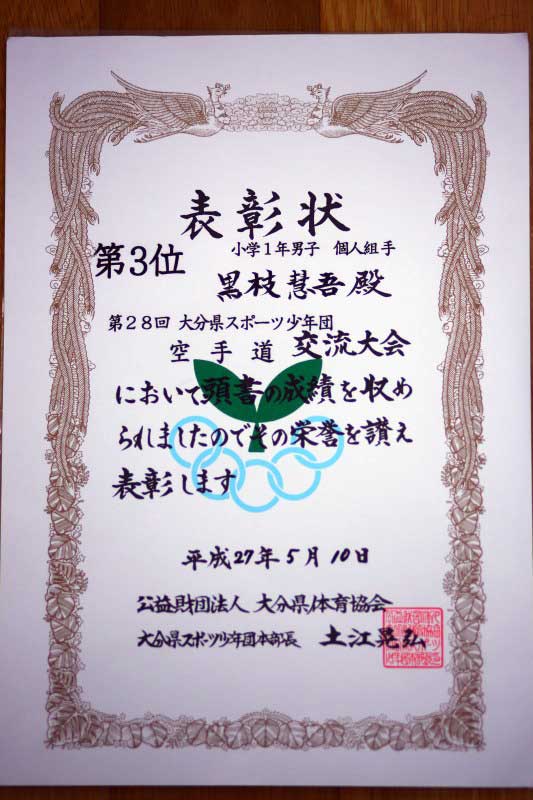 表彰状
小学1年男子 個人組手
第3位
黒枝慧吾殿
第28回 大分県スポーツ少年団
空手道 交流大会
において頭書の成績を収め
られましたのでその栄誉を讃え
表彰します
平成27年5月10日
公益財団法人 大分県体育協会
大分県スポーツ少年団本部長 土江晃弘